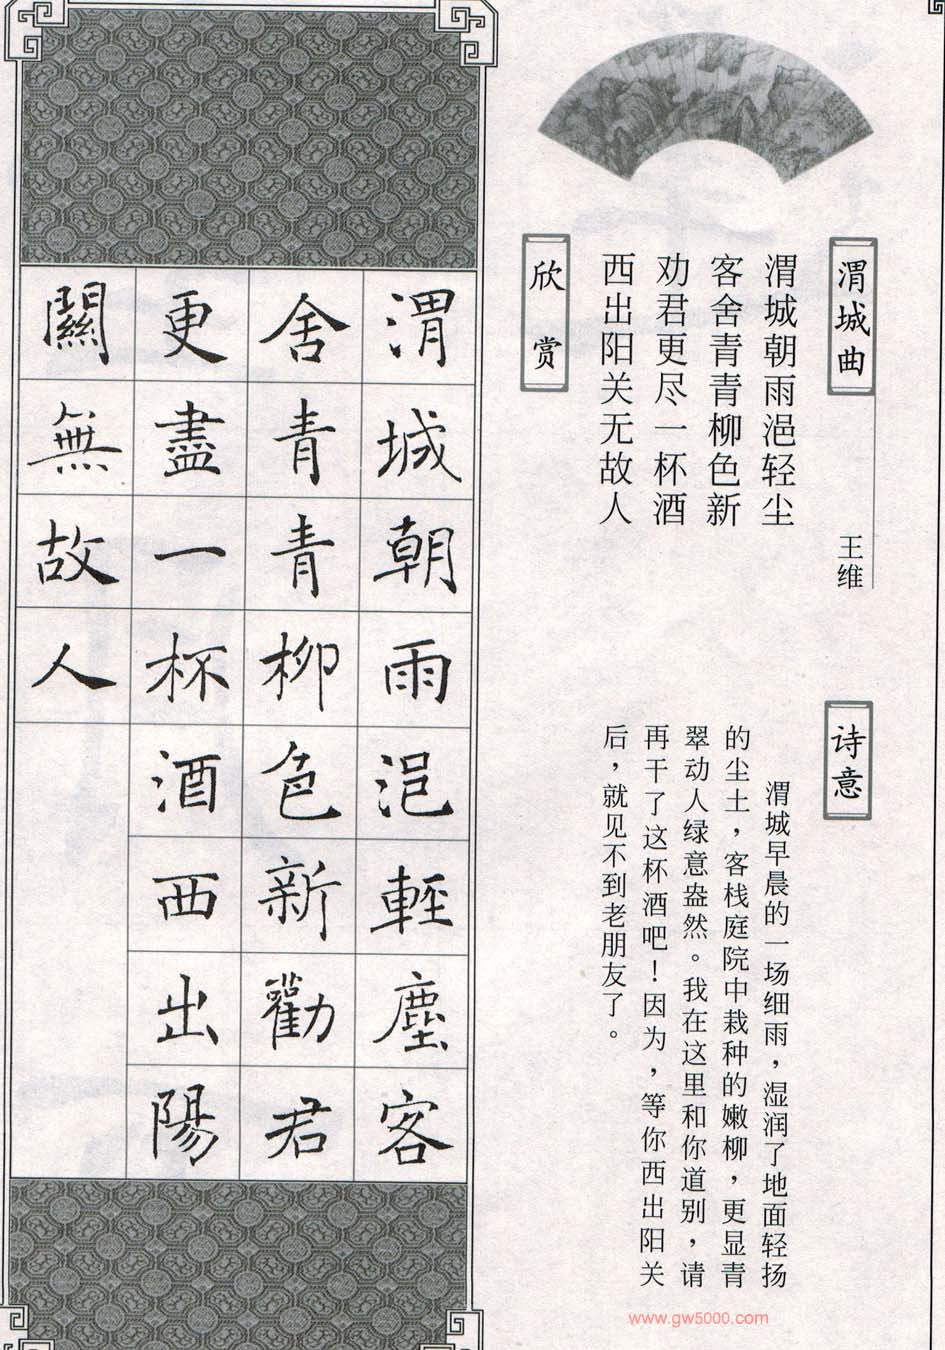 渭城曲
王维
渭城朝雨浥轻尘
客舍青青柳色新
劝君更尽一杯酒
西出阳关无故人
诗意
渭城早晨的一场细雨，湿润了地面轻扬
的尘土，客栈庭院中栽种的嫩柳，更显青
翠动人绿意盎然。我在这里和你道别，请
再干了这杯酒吧！因为，等你西出阳关
后，就见不到老朋友了。
欣赏
渭城朝雨浥輕塵客
舍青青柳色新勸君
更盡一杯酒西出陽
關無故人
www.gw5000.com